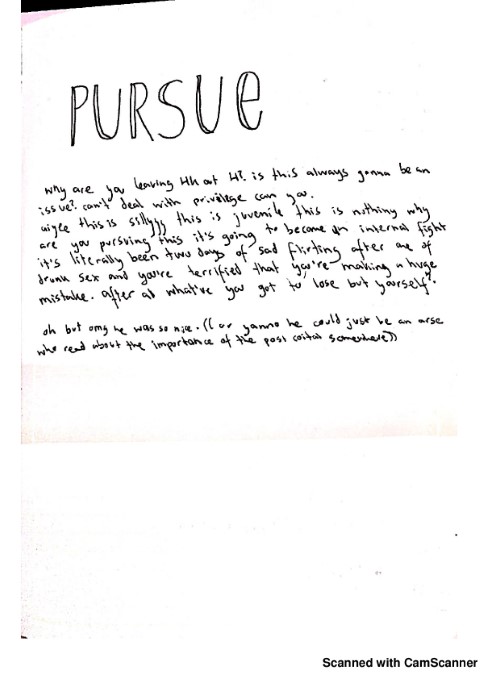 PURSUE
why are you leaving HH out H?. is this always gonna be an
issue? can't deal with privilege can you.
this is sillyyy this is juvenile this is nothing why
are you pursuing this it's going to become an internal fight
it's literally been two days of sad flirting after one of
drunk sex and you're terrified that you're making a huge
mistake. after all what've you got to lose but yourself?
oh but omg he was so nice. ((or yanno he could just be an arse
who read about the importance of the post coital somewhere))
Scanned with CamScanner